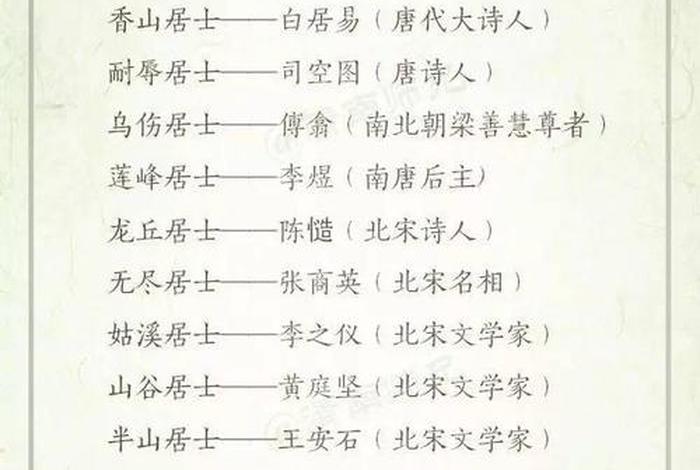 香山居士——白居易(唐代大诗人)
耐辱居士——司空图(唐诗人)
乌伤居士——傅翕(南北朝梁善慧尊者)
莲峰居士——李煜(南唐后主)
龙丘居士——陈慥(北宋诗人)
无尽居士——张商英(北宋名相)
姑溪居士——李之仪(北宋文学家)
山谷居士——黄庭坚(北宋文学家)
半山居士——王安石(北宋文学家)